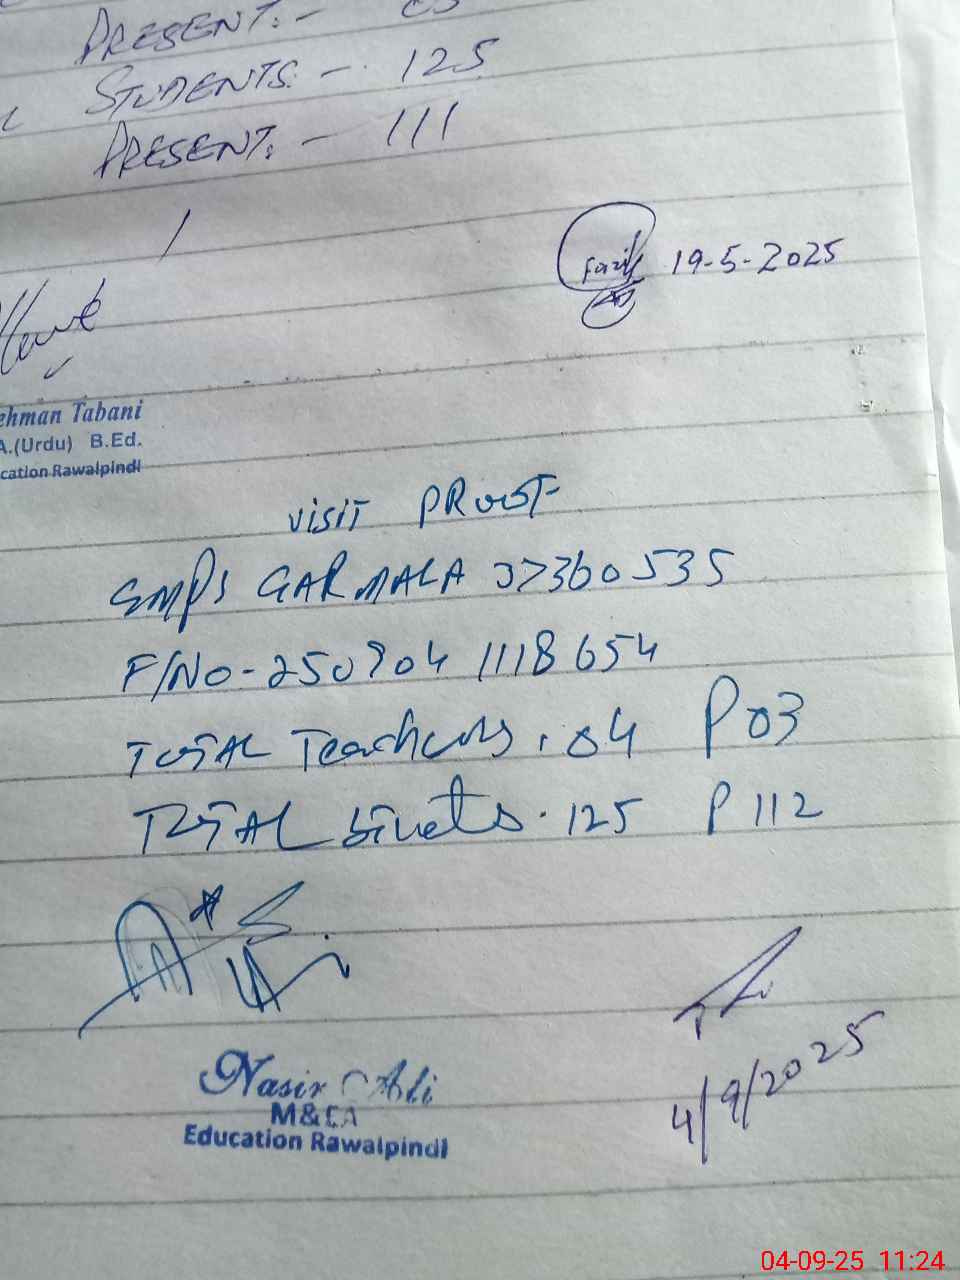 PRESENT:-
STUDENTS:- 125
PRESENT:- 111
Fazil 19-5-2025
ehman Tabani
A.(Urdu) B.Ed.
cation Rawalpindi
VISIT PROOF
GMPS GARMALA 37360535
F/No-250904 1118654
TOTAL Teachers. 04 P 03
TOTAL 125 P 112
Nasir Ali
M&EA
Education Rawalpindi
4/9/2025
04-09-25 11:24